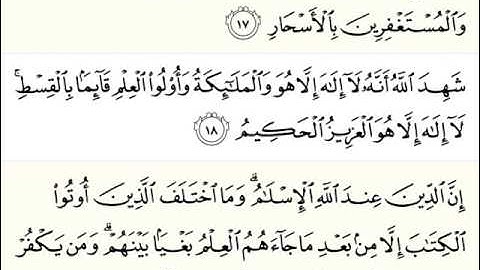 وَٱلْمُسْتَغْفِرِينَ بِٱلْأَسْحَارِ ١٧
شَهِدَ ٱللَّهُ أَنَّهُۥ لَآ إِلَٰهَ إِلَّا هُوَ وَٱلْمَلَٰٓئِكَةُ وَأُو۟لُوا۟ ٱلْعِلْمِ قَآئِمًۢا بِٱلْقِسْطِ ۚ
لَآ إِلَٰهَ إِلَّا هُوَ ٱلْعَزِيزُ ٱلْحَكِيمُ ١٨
إِنَّ ٱلدِّينَ عِندَ ٱللَّهِ ٱلْإِسْلَٰمُ ۗ وَمَا ٱخْتَلَفَ ٱلَّذِينَ أُوتُوا۟
ٱلْكِتَٰبَ إِلَّا مِنۢ بَعْدِ مَا جَآءَهُمُ ٱلْعِلْمُ بَغْيًۢا بَيْنَهُمْ ۗ وَمَن يَكْفُرْ